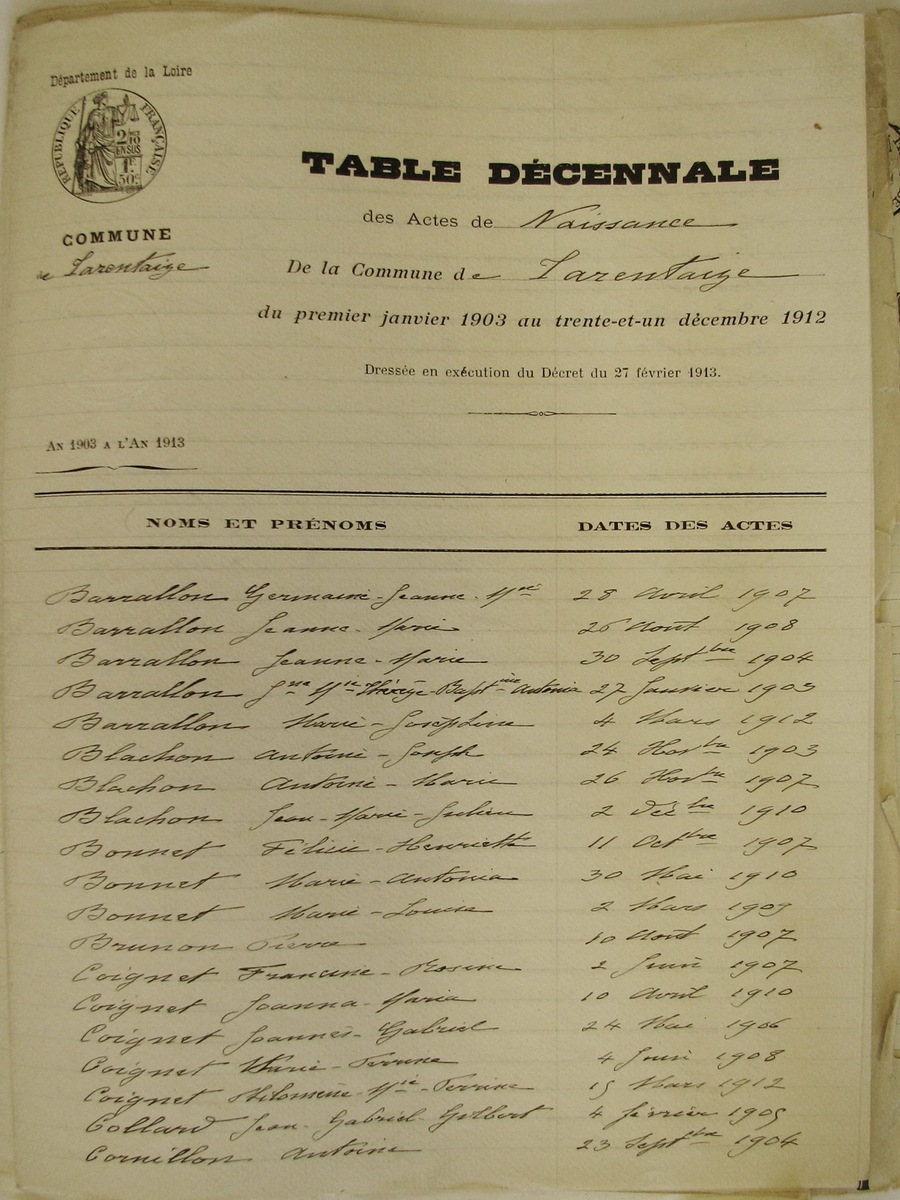 Département de la Loire
RÉPUBLIQUE FRANÇAISE
2/10
EN SUS
1F
50c
COMMUNE
de Tarentaize
TABLE DÉCENNALE
des Actes de Naissance
De la Commune de Tarentaize
du premier janvier 1903 au trente-et-un décembre 1912
Dressée en exécution du Décret du 27 février 1913.
AN 1903 A L'AN 1913
NOMS ET PRÉNOMS DATES DES ACTES
Barrallon Germaine-Jeanne-Mie 28 Avril 1907
Barrallon Jeanne-Marie 26 Aout 1908
Barrallon Jeanne-Marie 30 Septbre 1904
Barrallon Jne Mie Thérèze-Baptine Antonia 27 Janvier 1903
Barrallon Marie-Joséphine 4 Mars 1912
Blachon Antoine-Joseph 24 Novbre 1903
Blachon Antoine-Marie 26 Novbre 1907
Blachon Jean-Marie-Julien 2 Décbre 1910
Bonnet Félicie-Henriette 11 Octbre 1907
Bonnet Marie-Antonia 30 Mai 1910
Bonnet Marie-Louise 2 Mars
Brunon Pierre 10 Aout 1907
Coignet Francine-Rosine 2 Juin 1907
Coignet Joanna-Maria 10 Avril 1910
Coignet Joannès-Gabriel 24 Mai 1906
Coignet Marie-Perrine 4 Juin 1908
Coignet Philomène-Mie-Perrine 15 Mars 1912
Collard Jean-Gabriel-Gilbert 4 février 1905
Cornillon Antoine 23 Septbre 1904